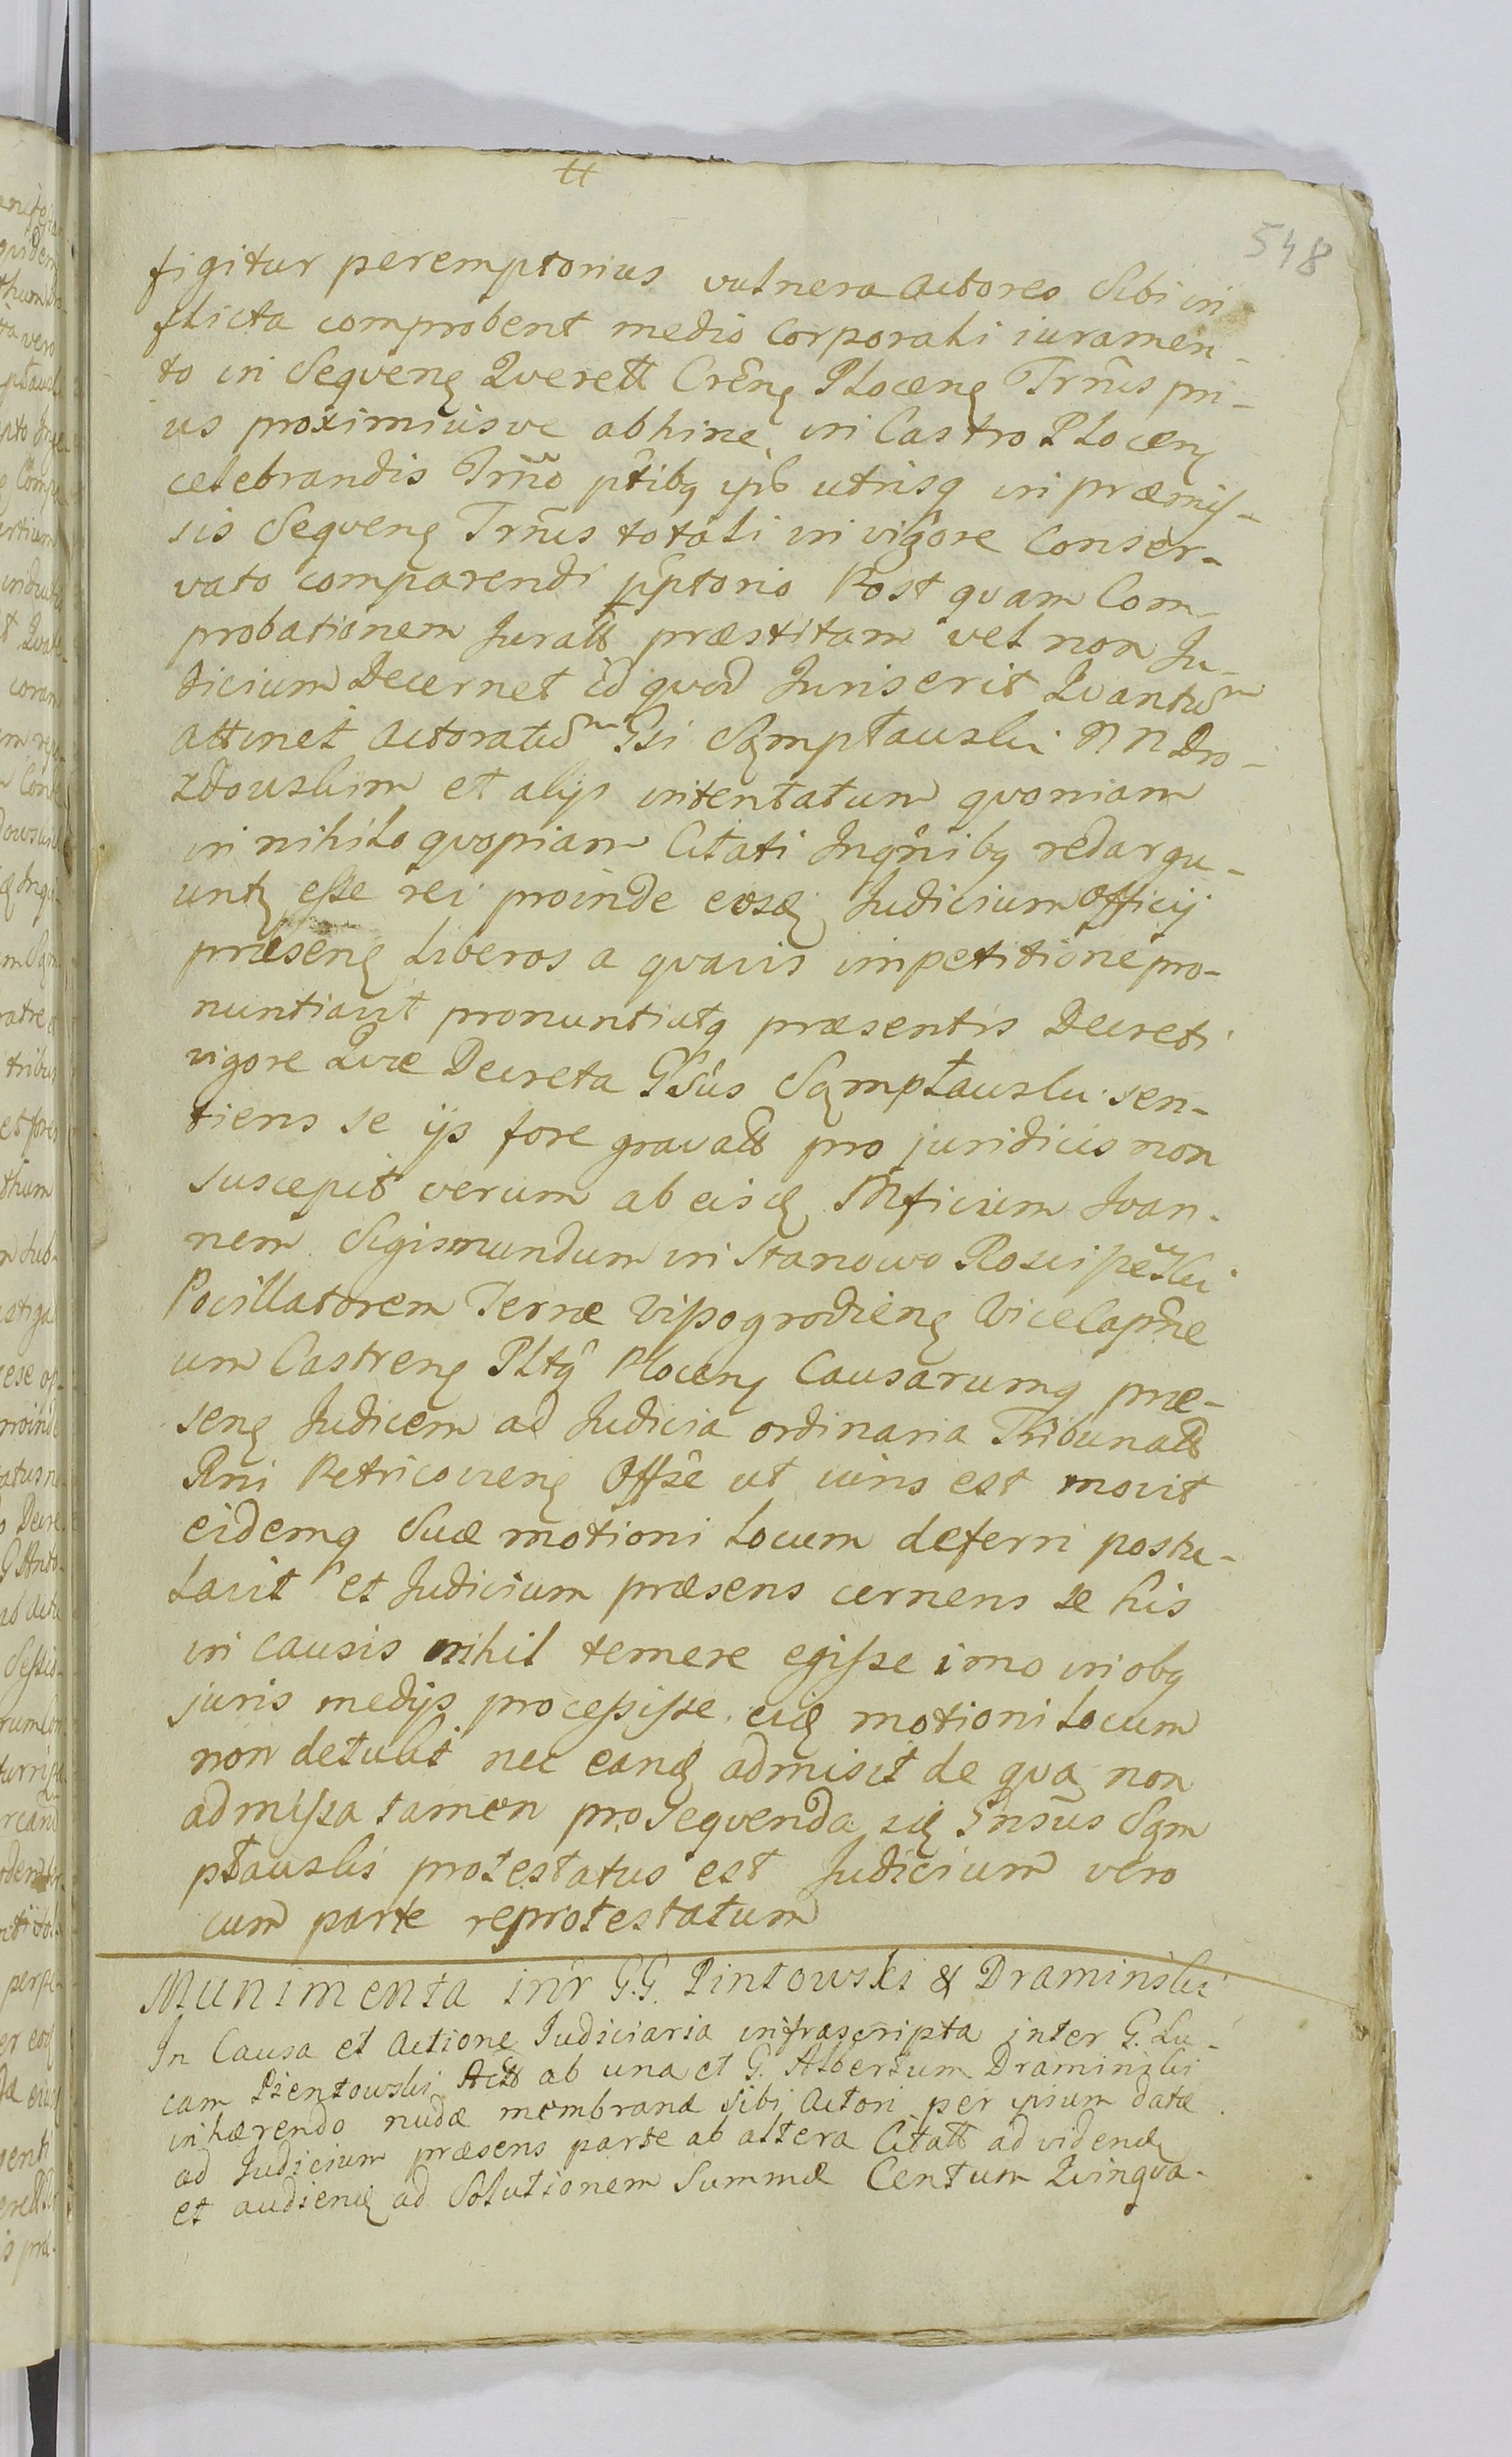 tt
548
figitur peremptorius vulnera actores sibi in
flicta comprobent medio corporali iuramen-
to in Seqveng Qverell Crêng Ploceng Trnis pri-
us proximiusve abhinc in Castro Ploceng
celebrandis Trno ptibq ipis utrisq in præmis-
sis Seqveng Trnis totali in vigore conser-
vato comparendi pptorio Post qvam Com
probationem Juratt præstitam vel non Ju-
dicium Decernet id qvod Juris erit Qvantum
attinet Actoratum Gsi Sgmptauski N N Dro-
zdouskim et alijs intentatum qvoniam
in nihilo qvopiam Citati Inqnibq redargu-
untz esse rei proinde eosd Judicium Officij
præseng liberos a qvavis impetitione pro-
nuntiavit pronuntiatq præsentis Decreti
vigore Qvæ Decreta Gsus Sgmptauski sen-
tiens se ijs fore gravatt pro juridicis non
suscepit verum ab eisd Mficium Ioan-
nem Sigismundum in Stanowo Roscipêski
Pocillatorem Terræ Vissogrodieng ViceCapne
um Castreng Pltq Ploceng Causarumq præ-
seng Judicem ad Judicia ordinaria Tribunatt
Rni Petricovieng Offse ut iuris est movit
eidemq Suæ motioni locum deferri postu-
lavit et Judicium præsens cernens se his
in causis nihil temere egisse imo in obq
juris medijs processisse eid motioni locum
non detulit nec eand admisit de qva non
admissa tamen prosequenda sid Gnsus Sgm
ptauskis protestatus est Judicium vero
cum parte reprotestatum
Munimenta intr G.G. Pintowski & Draminski
In Causa et Actione Judiciaria infrascripta inter G. Lu-
cam Pientowski Act ab una et G. Albertum Draminski
inhærendo nudæ membranæ sibi Actori per ipsum datæ
ad Judicium præsens parte ab altera Citatt ad videnđ
et audienđ ad Solutionem Summæ Centum Qvinqva-